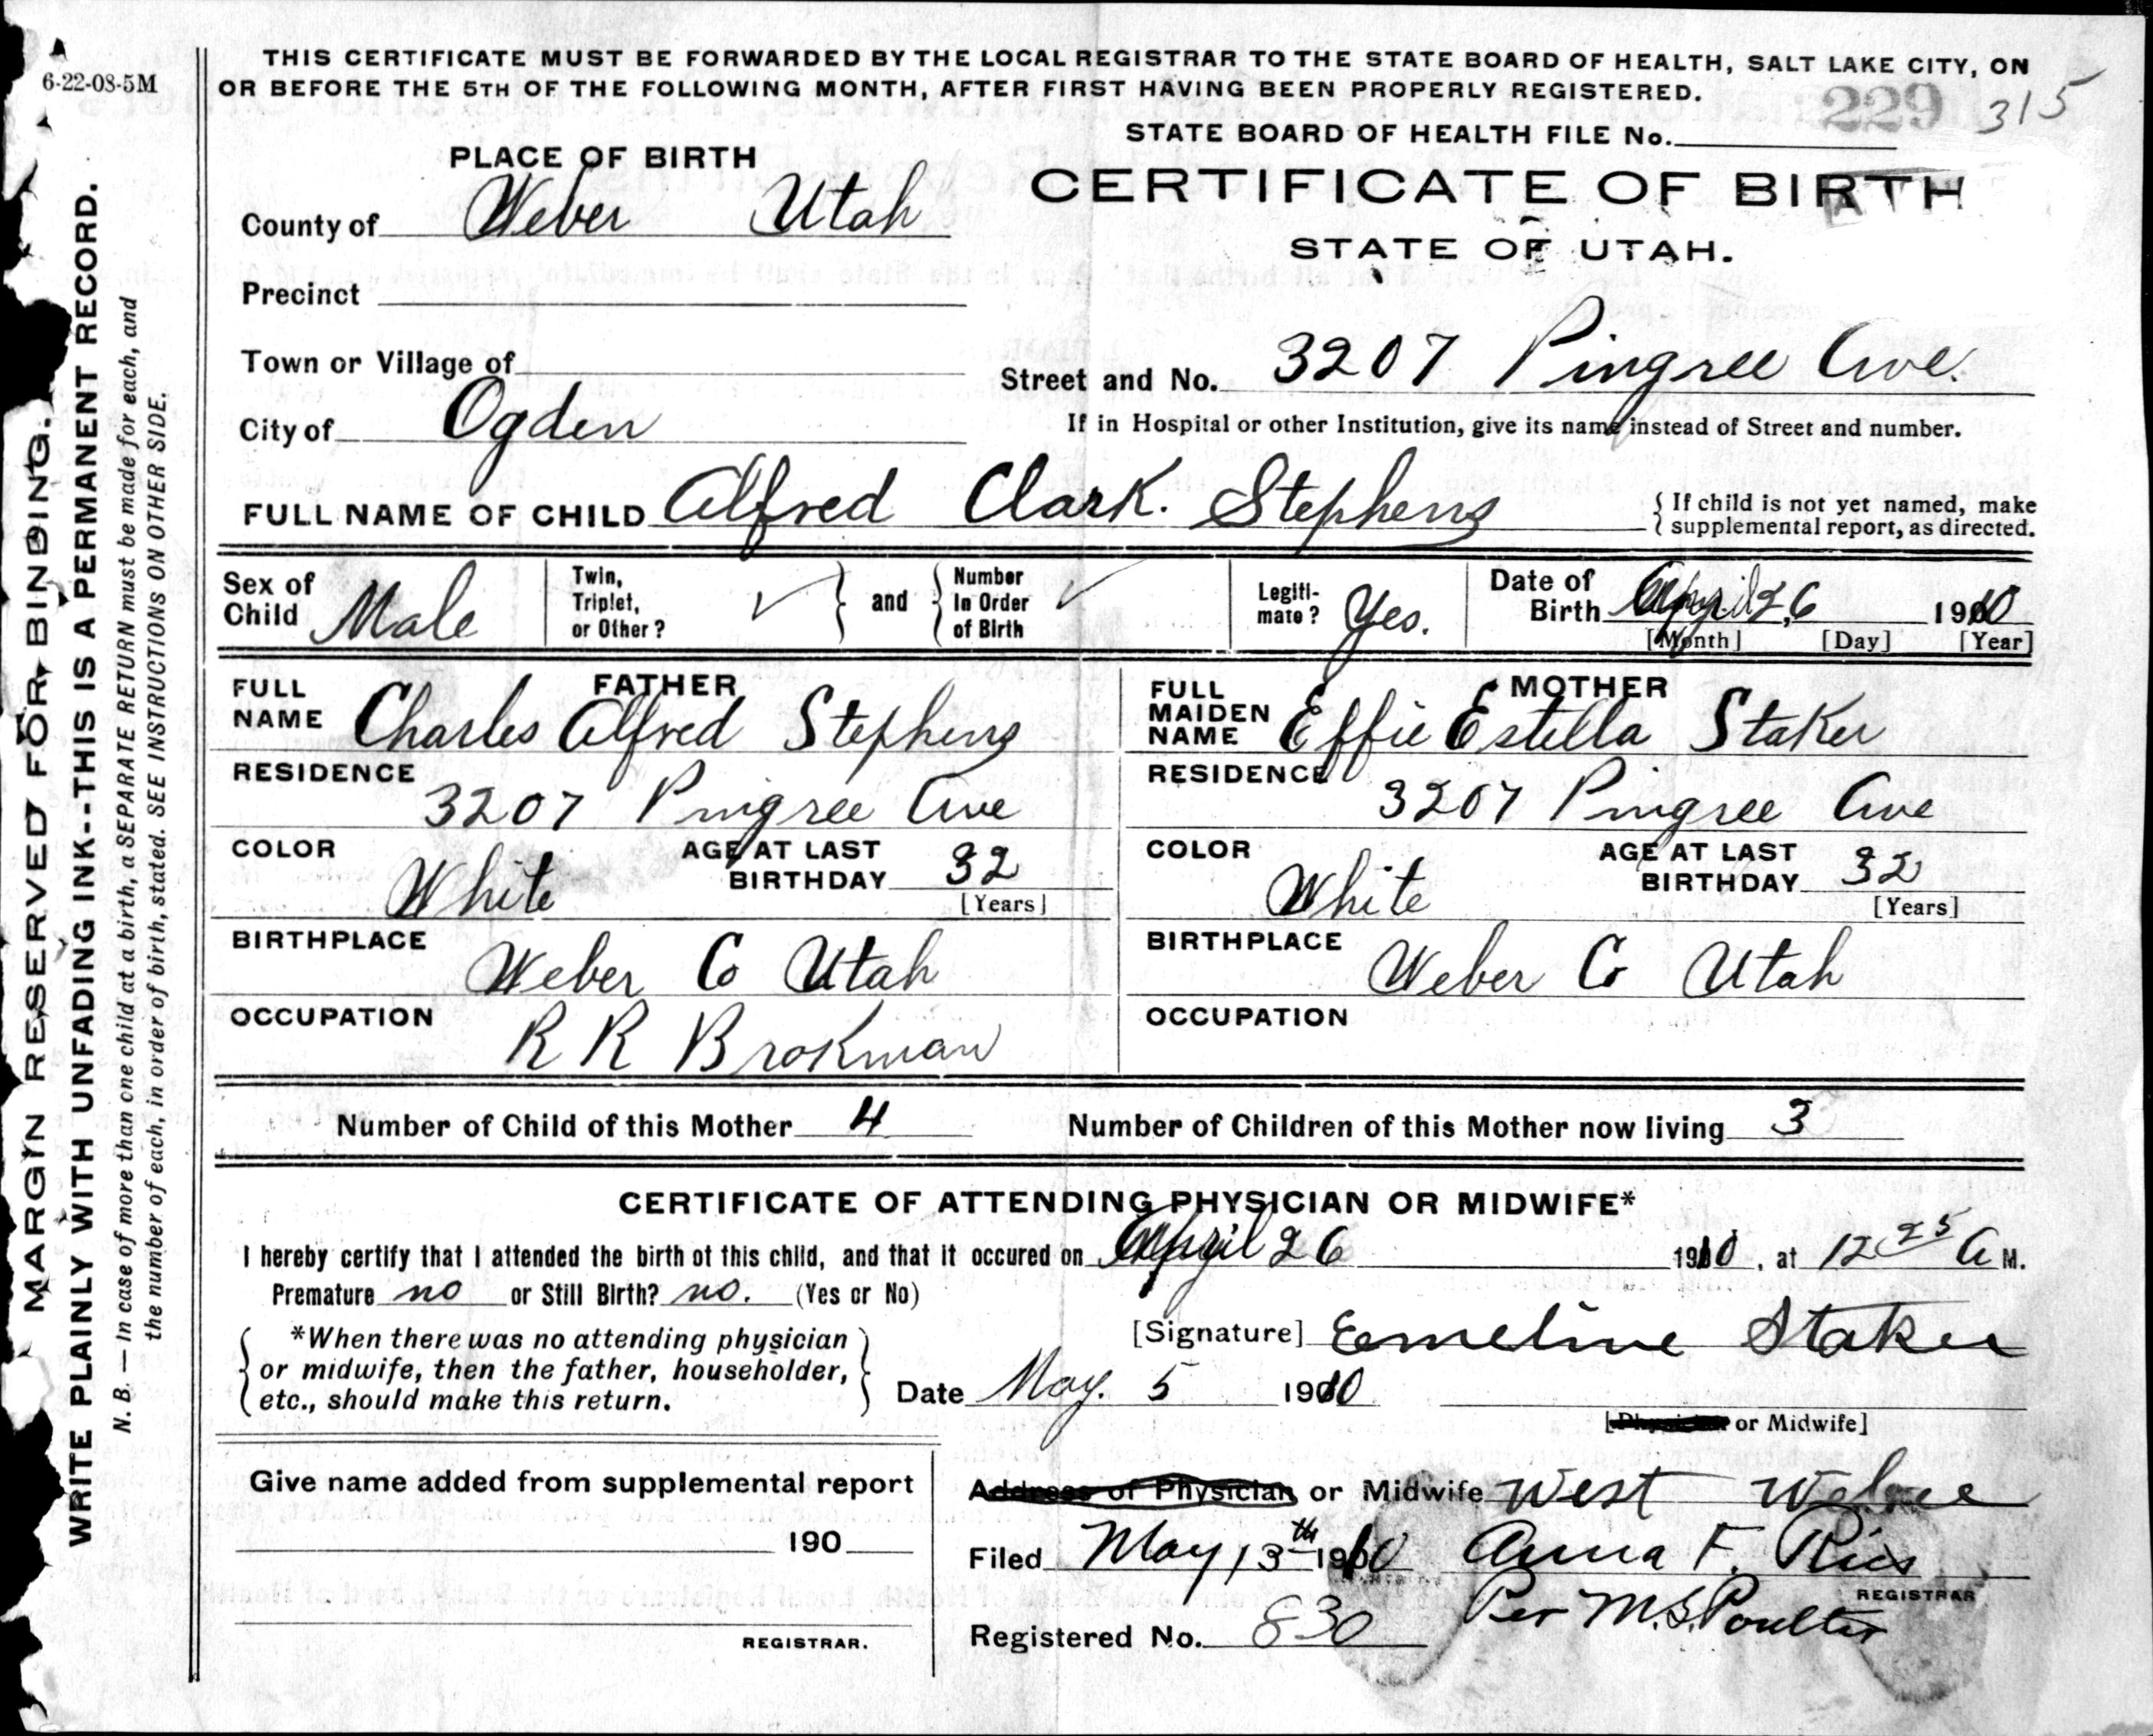 6-22-08-5M
THIS CERTIFICATE MUST BE FORWARDED BY THE LOCAL REGISTRAR TO THE STATE BOARD OF HEALTH, SALT LAKE CITY, ON
OR BEFORE THE 5TH OF THE FOLLOWING MONTH, AFTER FIRST HAVING BEEN PROPERLY REGISTERED.
229 315
STATE BOARD OF HEALTH FILE No.
PLACE OF BIRTH
CERTIFICATE OF BIRTH
STATE OF UTAH.
County of Weber Utah
Precinct
Town or Village of
Street and No. 3207 Pingree Ave.
City of Ogden
If in Hospital or other Institution, give its name instead of Street and number.
FULL NAME OF CHILD Alfred Clark. Stephens
If child is not yet named, make
supplemental report, as directed.
Sex of Child Male
Twin, Triplet, or Other? ✓ and Number In Order of Birth ✓
Legiti-mate? Yes.
Date of Birth April 26, 1910
[Month] [Day] [Year]
FATHER
FULL NAME Charles Alfred Stephens
RESIDENCE
3207 Pingree Ave
COLOR White AGE AT LAST BIRTHDAY 32
[Years]
BIRTHPLACE
Weber Co Utah
OCCUPATION
R R Brakman
MOTHER
FULL MAIDEN NAME Effie Estella Staker
RESIDENCE
3207 Pingree Ave
COLOR White AGE AT LAST BIRTHDAY 32
[Years]
BIRTHPLACE
Weber Co Utah
OCCUPATION
Number of Child of this Mother 4 Number of Children of this Mother now living 3
CERTIFICATE OF ATTENDING PHYSICIAN OR MIDWIFE*
I hereby certify that I attended the birth of this child, and that it occured on April 26 1910, at 12 25 A M.
Premature no or Still Birth? no. (Yes or No)
*When there was no attending physician
or midwife, then the father, householder,
etc., should make this return.
[Signature] Emeline Staker
Date May. 5 1910
[Physician or Midwife]
Give name added from supplemental report
190
REGISTRAR.
Address of Physician or Midwife West Weber
Filed May 13th 1910 Anna F. Ries
REGISTRAR
Per M.S. Poulter
Registered No. 830
MARGIN RESERVED FOR BINDING.
WRITE PLAINLY WITH UNFADING INK--THIS IS A PERMANENT RECORD.
N. B. — In case of more than one child at a birth, a SEPARATE RETURN must be made for each, and
the number of each, in order of birth, stated. SEE INSTRUCTIONS ON OTHER SIDE.